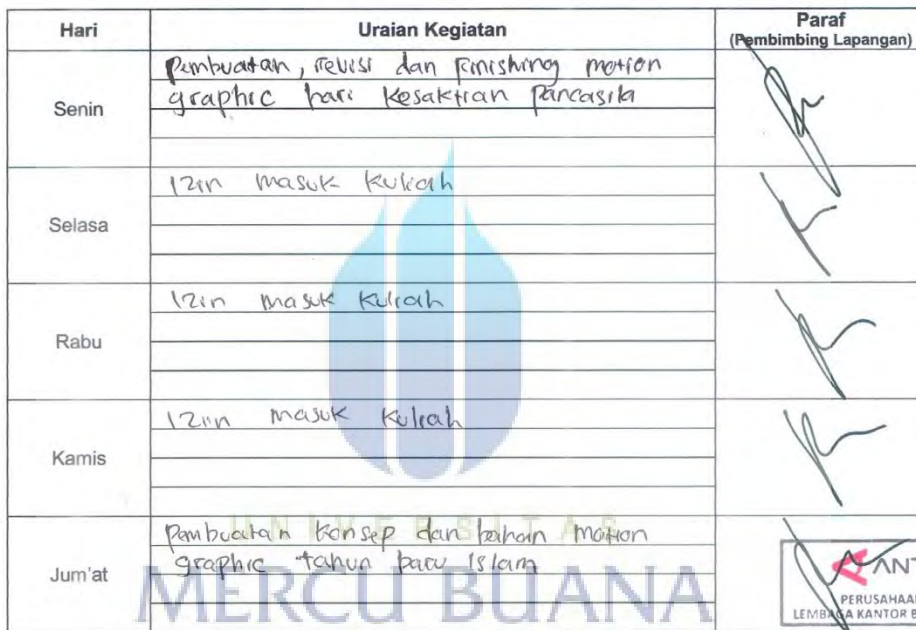 Hari Uraian Kegiatan Paraf
(Pembimbing Lapangan)
Senin
Pembuatan, revisi dan finishing motion
graphic hari Kesaktian Pancasila
Selasa
Izin masuk kuliah
Rabu
Izin masuk kuliah
Kamis
Izin masuk kuliah
Jum'at
Pembuatan konsep dan bahan motion
graphic tahun baru Islam
UNIVERSITAS
MERCU BUANA
ANT
PERUSAHAA
LEMBAGA KANTOR B